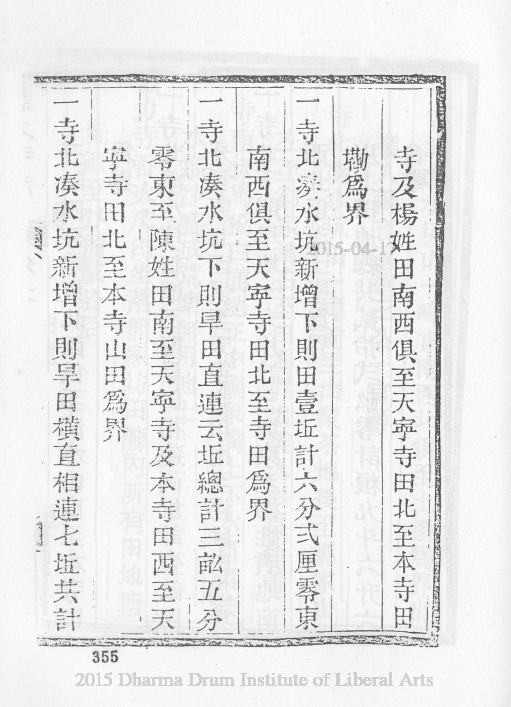 寺及楊姓田南西俱至天寧寺田北至本寺田
墈為界
一寺北湊水坑新增下則田壹坵計六分弍厘零東
南西俱至天寧寺田北至寺田為界
一寺北湊水坑下則旱田直連云坵總計三畝五分
零東至陳姓田南至天寧寺及本寺田西至天
寧寺田北至本寺山田為界
一寺北湊水坑新增下則旱田橫直相連七坵共計
2015-04-17
355
2015 Dharma Drum Institute of Liberal Arts